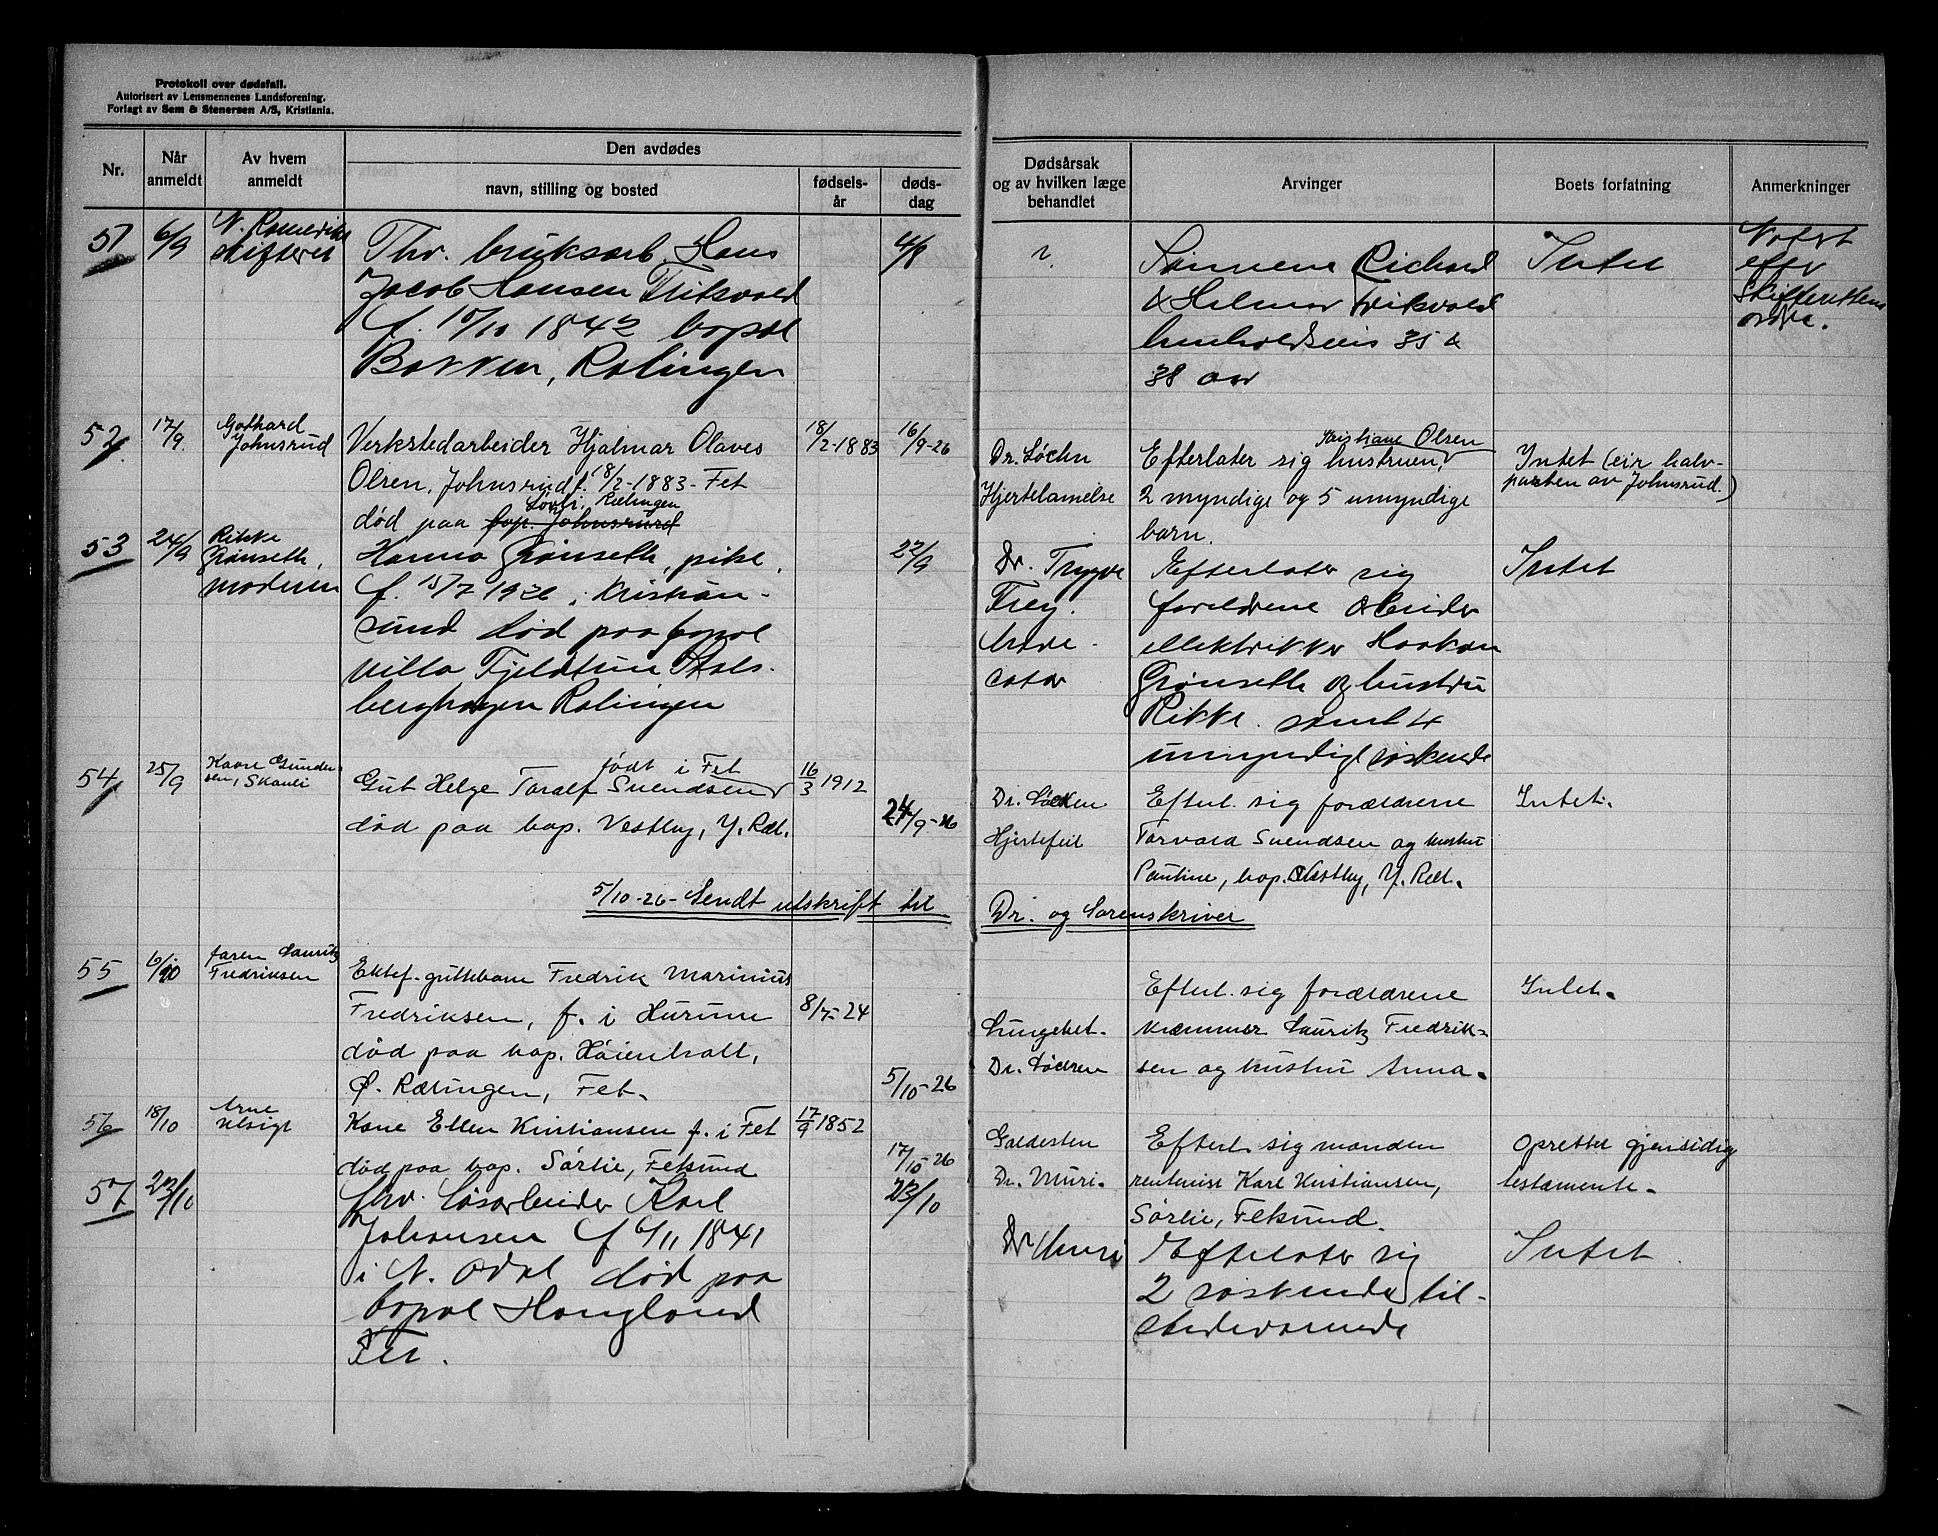 Protokoll over dødsfall.
Autorisert av Lensmennenes Landsforening.
Forlagt av Sem & Stenersen A/S, Kristiania.
Nr.
Når anmeldt
Av hvem anmeldt
Den avdødes
navn, stilling og bosted
fødsels-
år
døds-
dag
Dødsårsak
og av hvilken læge
behandlet
Arvinger
Boets forfatning
Anmerkninger
51
6/9
N. Romerike
skifteret
Fhv. bruksarb. Hans
Jacob Hansen
f. 10/10 1842 bopæl
Bakken, Rælingen
4/8
?
Sønnene Richard
& Helmar
henholdsvis 35 &
38 aar
Intet
Notert
efter
Skifterettens
ordre.
52
17/9
Gothard
Johnsrud
Verkstedarbeider Hjalmar Olaves
Olsen, Johnsrud f. 18/2-1883 - Fet
Løvli, Rælingen
død paa bop. Johnsrud
18/2-1883
16/9-26
Dr. Løchen
Hjertelamelse
Kristiane Olsen
Efterlater sig hustruen,
2 myndige og 5 umyndige
barn.
Intet (eir halv-
parten av Johnsrud.)
53
24/9
Rikke
Grønseth,
moderen
Hanna Grønseth, pike,
f. 15/7 1926 i Kristian-
sund død paa bopæl
Villa Fjeldtun Stals-
berghagen Rælingen
22/9
Dr. Trygve
Frey.
Mave-
catar
Efterlater sig
foreldrene arbeider
elektrikker Haakon
Grønseth og hustru
Rikke. samt 4
umyndige søskende
Intet
54
25/9
Kaare Gunder-
sen, Skanli
født i Fet
Gut Helge Toralf Svendsen
død paa bop. Vestby, Y. Ræl.
16/3 1912
24/9-26
Dr. Løchen
Hjertefeil
Efterl. sig forældrene
Torvald Svendsen og hustru
Pauline, bop. Vestby, Y. Ræl.
Intet.
5/10-26 - Sendt utskrift til
Dr. og Sorenskriver
55
6/10
faren Lauritz
Fredriksen
Ektef. guttebarn Fredrik Marinius
Fredriksen, f. i Hurum
død paa bop. Høienhall,
Ø. Rælingen, Fet.
8/7-24
5/10-26
Lungebet.
Dr. Løchen
Efterl. sig forældrene
kræmmer Lauritz Fredrik-
sen og hustru Anna.
Intet.
56
18/10
Arne
Ulsigt
Kone Ellen Kristiansen f. i Fet
død paa bop. Sørlie, Fetsund
17/9 1852
17/10-26
Galdesten
Dr. Muri.
Efterl. sig manden
rentenist Karl Kristiansen,
Sørlie, Fetsund.
Oprettet gjensidig
testamente.
57
23/10
fhv. løsarbeider Karl
Johansen f 6/11 1841
i N. Odal død paa
bopæl Hauglund
Fet.
23/10
Dr Muri
Efterlater sig
2 søskende til-
stedeværende
Intet.